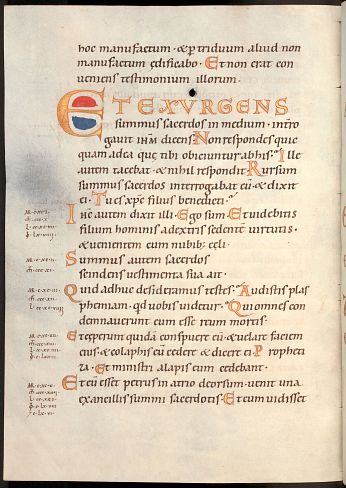 hoc manufactum · & p triduum aliud non
manufactum ędificabo · Et non erat con
ueniens testimonium illorum ·
ET EXURGENS
summus sacerdos in medium · intro
gauit ihm dicens · Non respondes quic
quam ad ea quę tibi obiciuntur ab his · Ille
autem tacebat · & nihil respondit · Rursum
summus sacerdos interrogabat eu · & dixit
ei · Tu es xpc filius benedicti ·
Ihc autem dixit illi · Ego sum · Et uidebitis
filium hominis a dextris sedente uirtutis ·
& uenientem cum nubib; cęli ·
Summus autem sacerdos
scindens uestimenta sua ait ·
Quid adhuc desideramus testes · Audistis blas
phemiam · qd uobis uidetur · Qui omnes con
demnauerunt eum esse reum mortis ·
Et ceperunt quida conspuere eu · & uelare faciem
eius · & colaphis eu cedere & dicere ei · Propheti
za · Et ministri alapis eum cedebant ·
Et cu esset petrus in atrio deorsum · uenit una
ex ancillis summi sacerdotis · Et cum uidisset